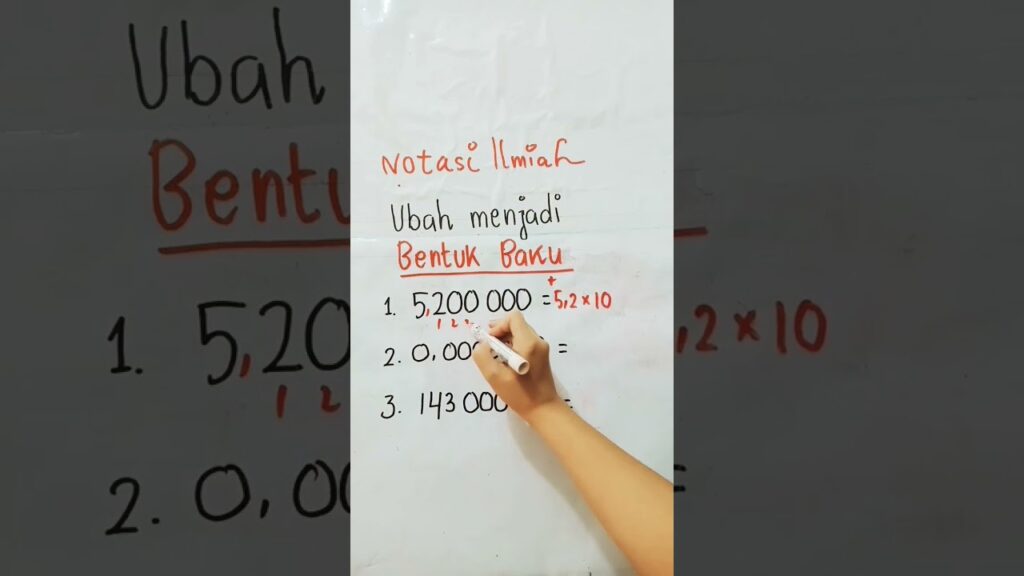 Notasi Ilmiah
Ubah menjadi
Bentuk Baku
1. 5,200 000 = 5,2 × 10
1 2
2. 0,00 =
3. 143 000 =